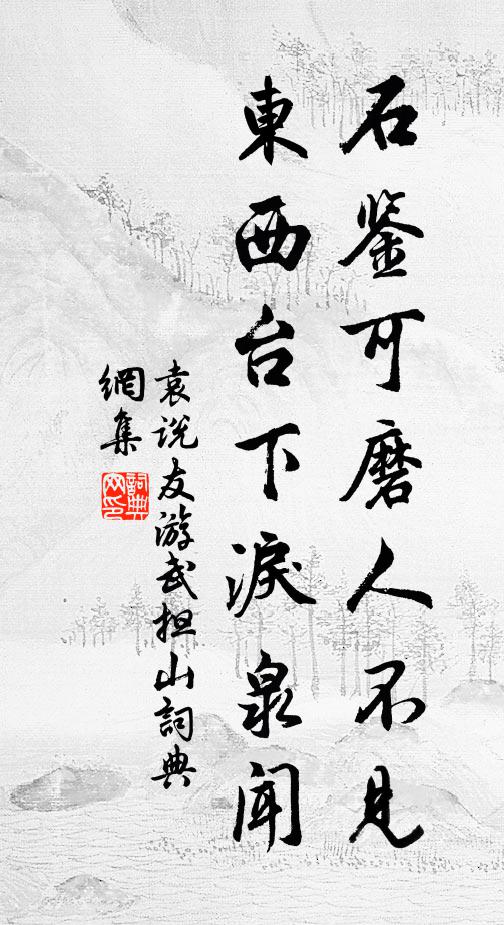 石鉴可磨人不見
東西台下淚泉聞
袁说友游武担山詞典
網集
詞典网印